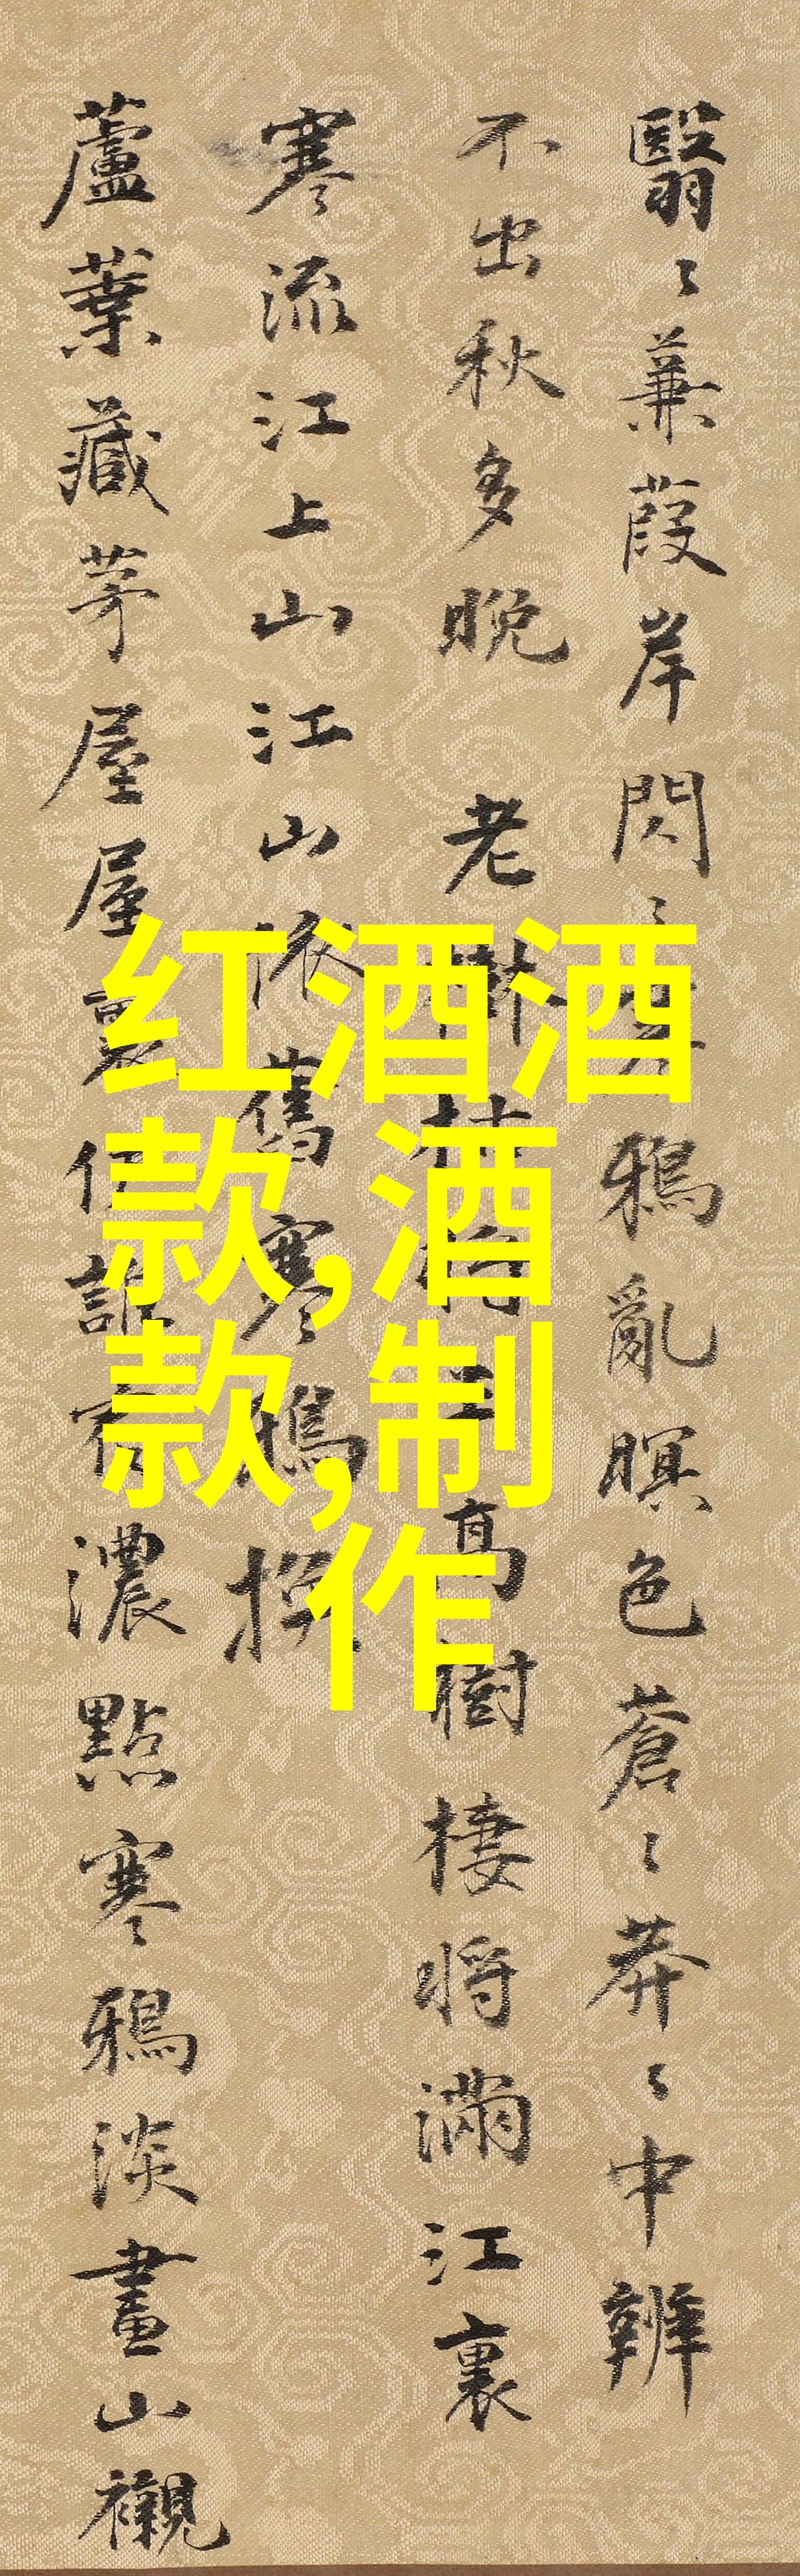 翳〻蒹葭岸閃〻鴉亂暝色蒼〻莽〻中辨
不出秋多晚 老高樹棲將滿江裏
寒流江上山江山依舊寒鴉
蘆葉藏茅屋屋裏濃點寒鴉淡畫山襯
红酒酒
款,酒
款,制
作